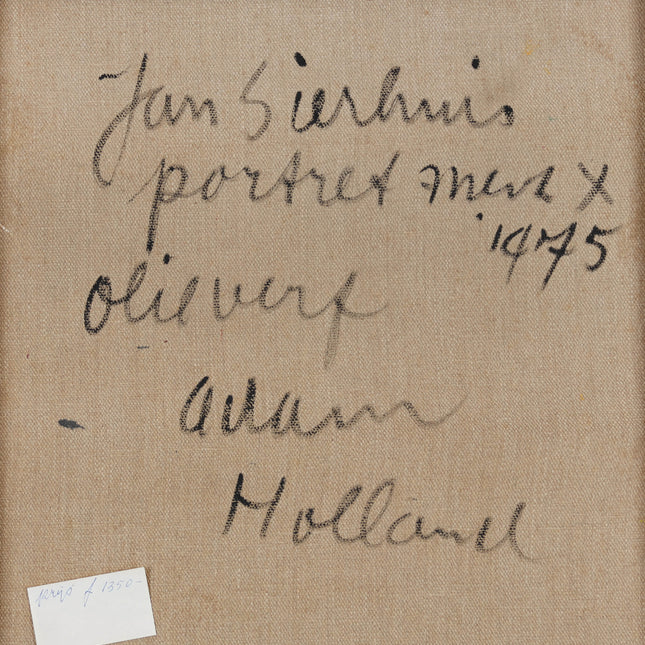 Jan Sierhuis
portret Merk X
1975
olieverf
Adam
Holland
prijs f 1350-